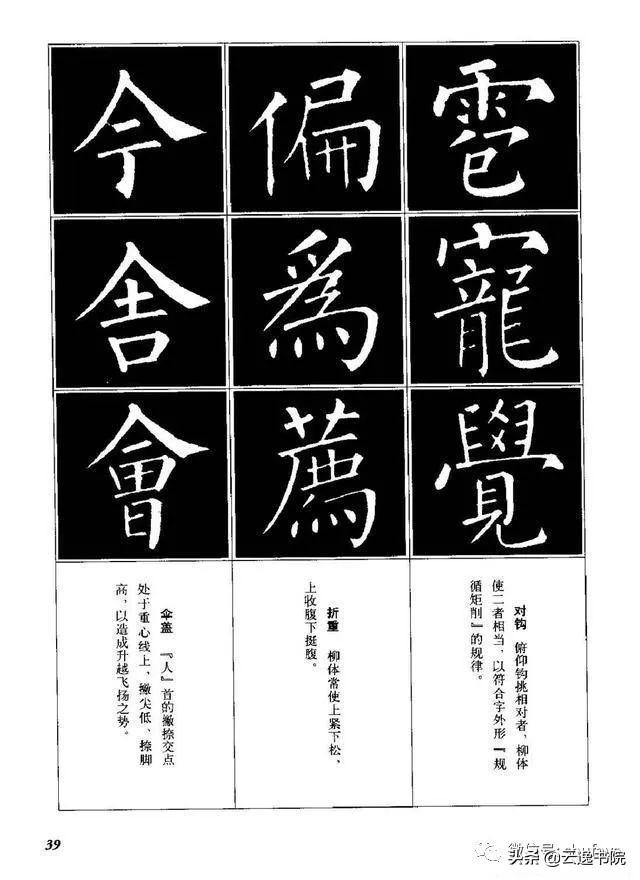 雹
寵
覺
对钩 俯仰钩挑相对者，柳体
使二者相当，以符合字外形『规
循矩削』的规律。
偏
爲
薦
折重 柳体常使上紧下松、
上收腹下挺腹。
今
舍
會
伞盖 『人』首的撇捺交点
处于重心线上，撇尖低、捺脚
高，以造成升越飞扬之势。
39
微信号:
头条@云逸书院